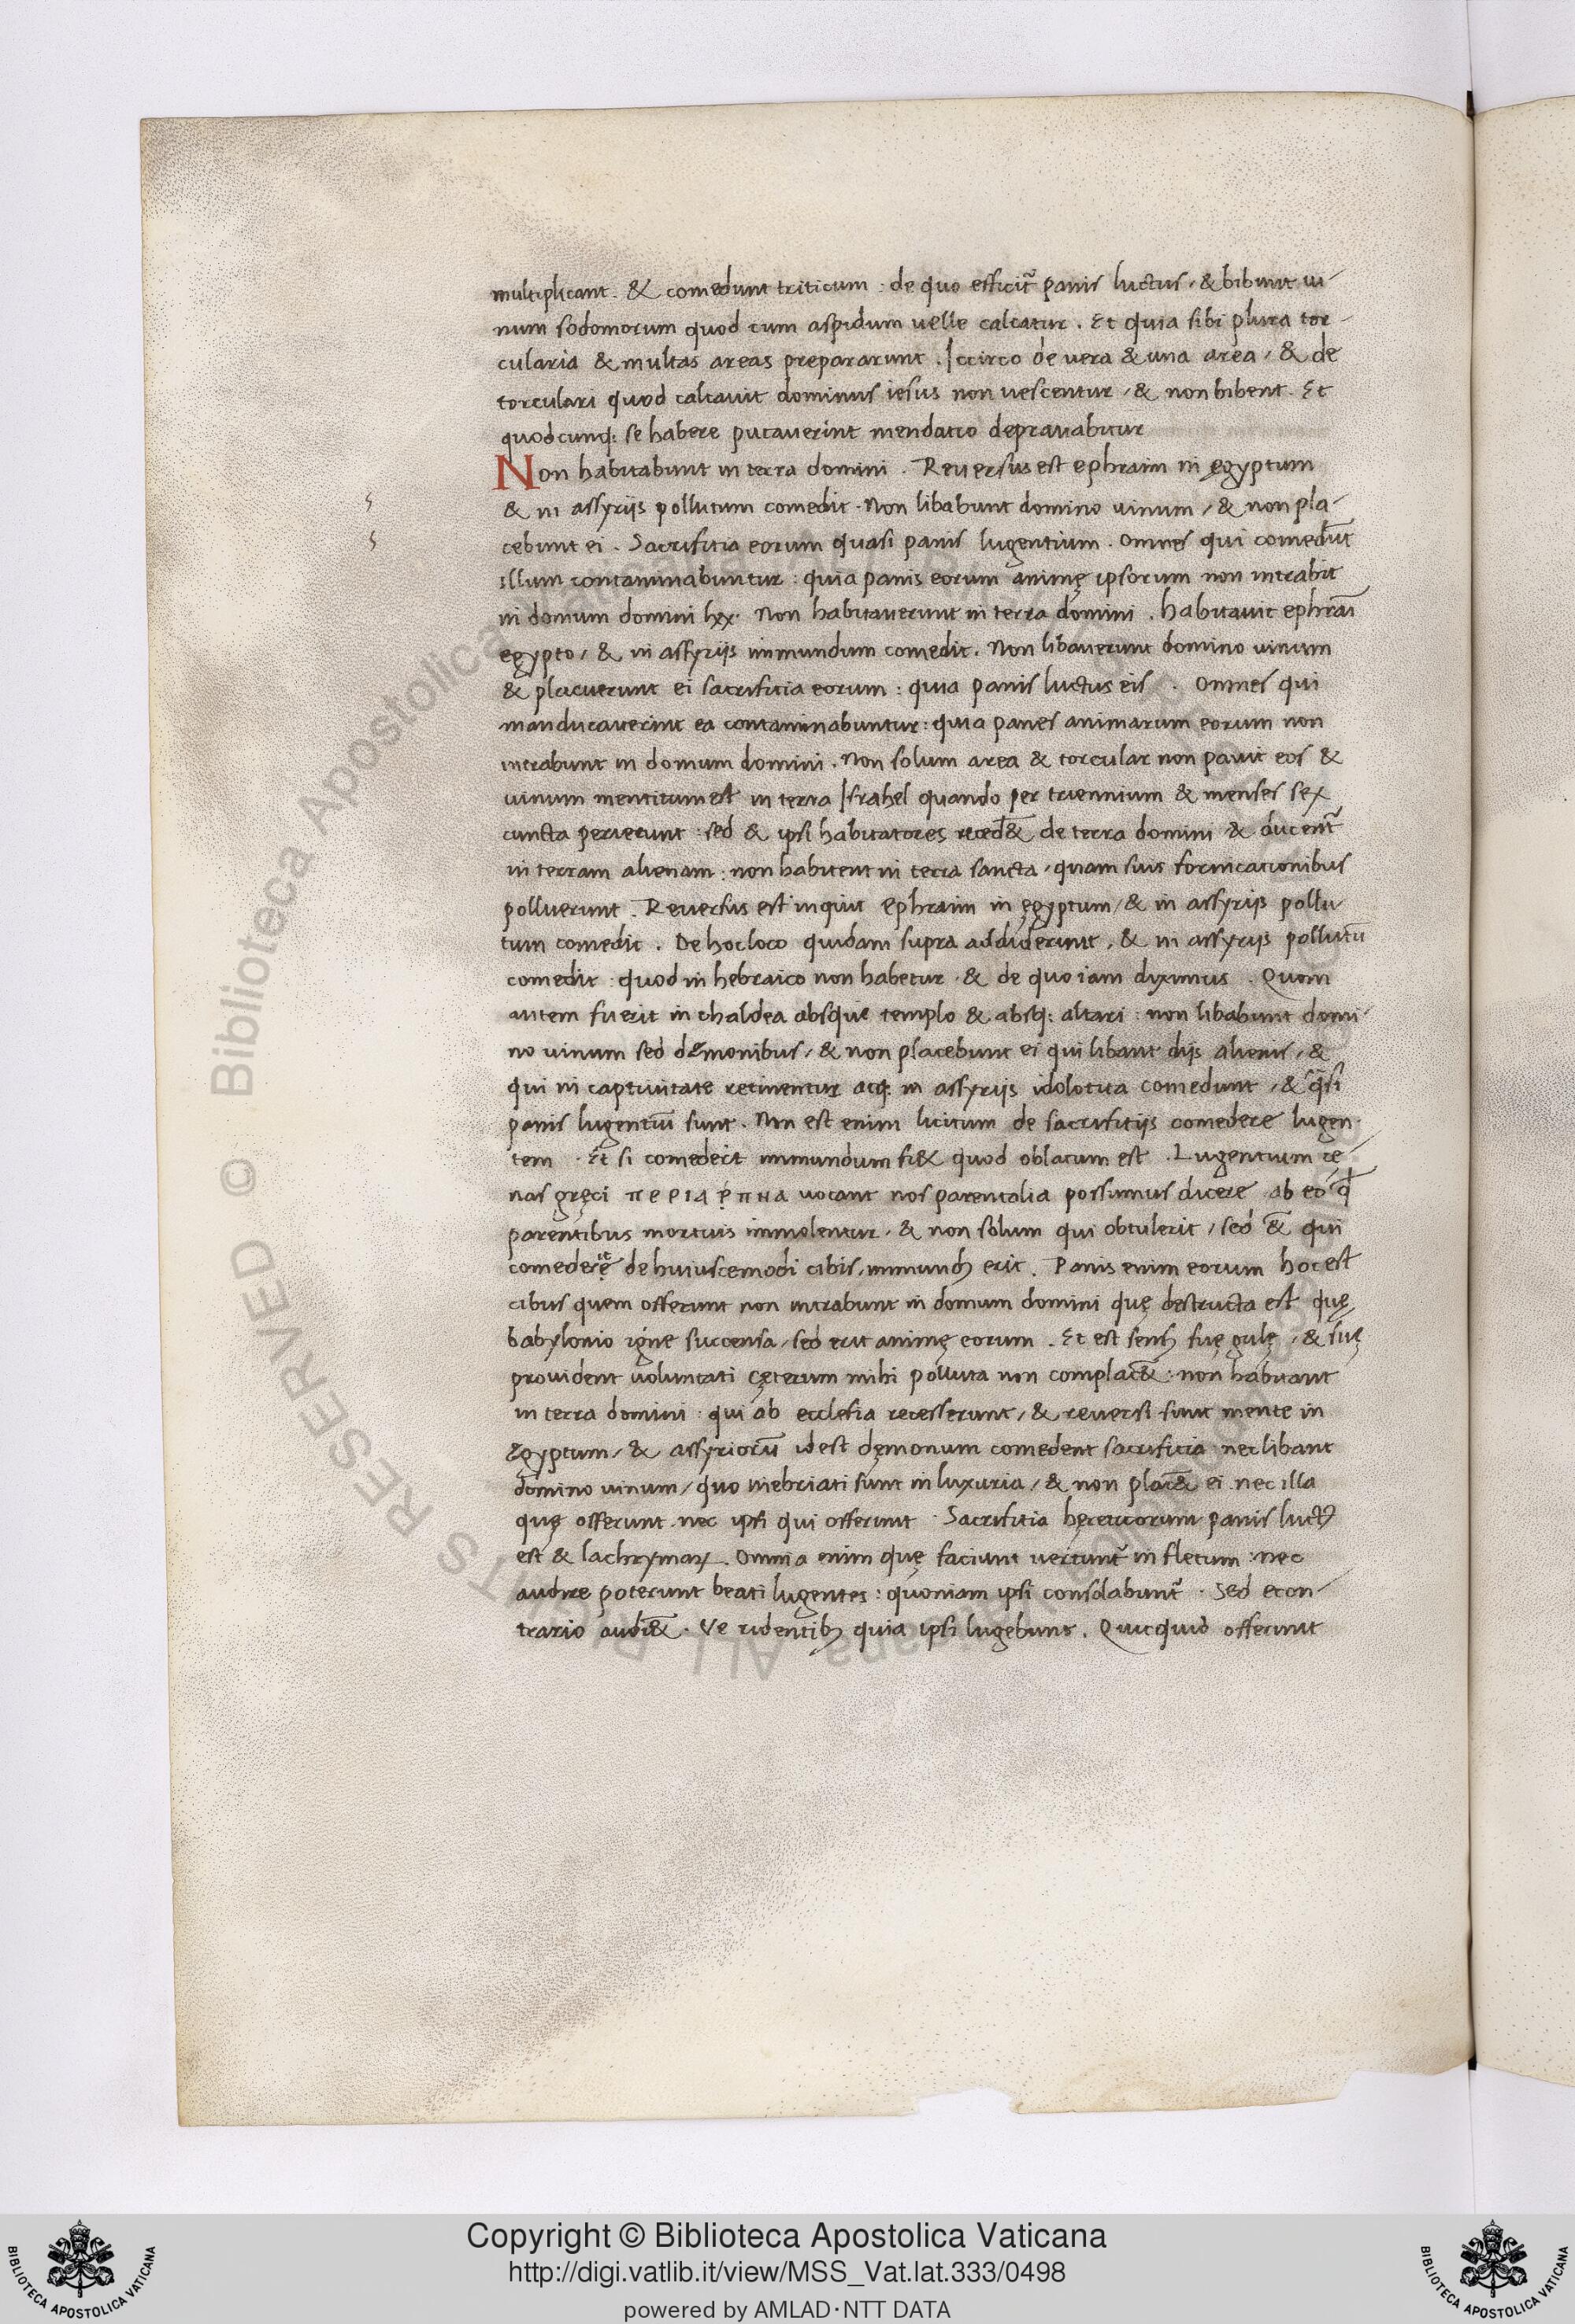 multiplicant. & comedunt triticum : de quo efficit̃ panis luctus, & bibunt ui-
num sodomorum quod cum aspidum uelle calcatur. Et quia sibi plura tor-
cularia & multas areas prepararunt. Iccirco de vera & una area, & de
torculari quod calcauit dominus iesus non uescentur, & non bibent. Et
quodcunq; se habere putauerint mendatio deprauabitur
Non habitabunt in terra domini. Reuersus est ephraim in ęgyptum
& in assyrijs pollutum comedit. Non libabunt domino uinum, & non pla-
cebunt ei. Sacrifitia eorum quasi panis lugentium. Omnes qui comedũt
illum contaminabuntur: quia panis eorum animę ipsorum non intrabit
in domum domini lxx. Non habitauerunt in terra domini. habitauit ephraĩ
egypto, & in assyrijs immundum comedit. Non libauerunt domino uinum
& placuerunt ei sacrifitia eorum: quia panis luctus eis. Omnes qui
manducauerint ea contaminabuntur: quia panes animarum eorum non
intrabunt in domum domini. Non solum area & torcular non pauit eos &
uinum mentitum est in terra Israhel quando per triennium & menses sex
cuncta perierunt: sed & ipsi habitatores reced&̃ de terra domini & ducent̃
in terram alienam: non habitent in terra sancta, quam suis fornicationibus
polluerunt. Reuersus est inquit Ephraim in ęgyptum, & in assyrijs pollu-
tum comedit. De hoc loco quidam supra addiderunt, & in assyrijs pollutũ
comedit: quod in hebraico non habetur. & de quo iam diximus. Quom
autem fuerit in chaldea absque templo & absq; altari: non libabunt domi-
no uinum sed dęmonibus, & non placebunt ei qui libant dijs alienis, &
qui in captiuitate retinentur atq; in assyrijs idolotita comedunt, & q̃si
panis lugentiũ sunt. Non est enim licitum de sacrifitijs comedere lugen-
tem. Et si comederit immundum fi& quod oblatum est. Lugentium cę-
nas gręci περιδέπνα uocant nos parentalia possumus dicere ab eo q̃
parentibus mortuis immolentur. & non solum qui obtulerit, sed &̃ qui
comederit de huiuscemodi cibis, immundꝫ erit. Panis enim eorum hoc est
cibus quem offerunt non intrabunt in domum domini quę destructa est quę
babylonio igne succensa, sed erit animę eorum. Et est sensꝫ suę gulę, & suę
prouident uoluntati cęterum mihi polluta non complac&̃: non habitant
in terra domini: qui ab ecclesia recesserunt, & reuersi sunt mente in
ęgyptum, & assyriorũ id est dęmonum comedent sacrificia nec libant
domino uinum, quo inebriati sunt in luxuria, & non plac&̃ ei nec illa
quę offerunt nec ipsi qui offerunt. Sacrifitia hęreticorum panis luctꝰ
est & lachrymaꝝ. Omnia enim quę faciunt uertunt̃ in fletum: nec
audire poterunt beati lugentes: quoniam ipsi consolabunt̃. Sed econ-
trario audi&̃. Ve ridentibꝫ quia ipsi lugebunt. Quicquid offerunt
Copyright © Biblioteca Apostolica Vaticana
http://digi.vatlib.it/view/MSS_Vat.lat.333/0498
powered by AMLAD·NTT DATA